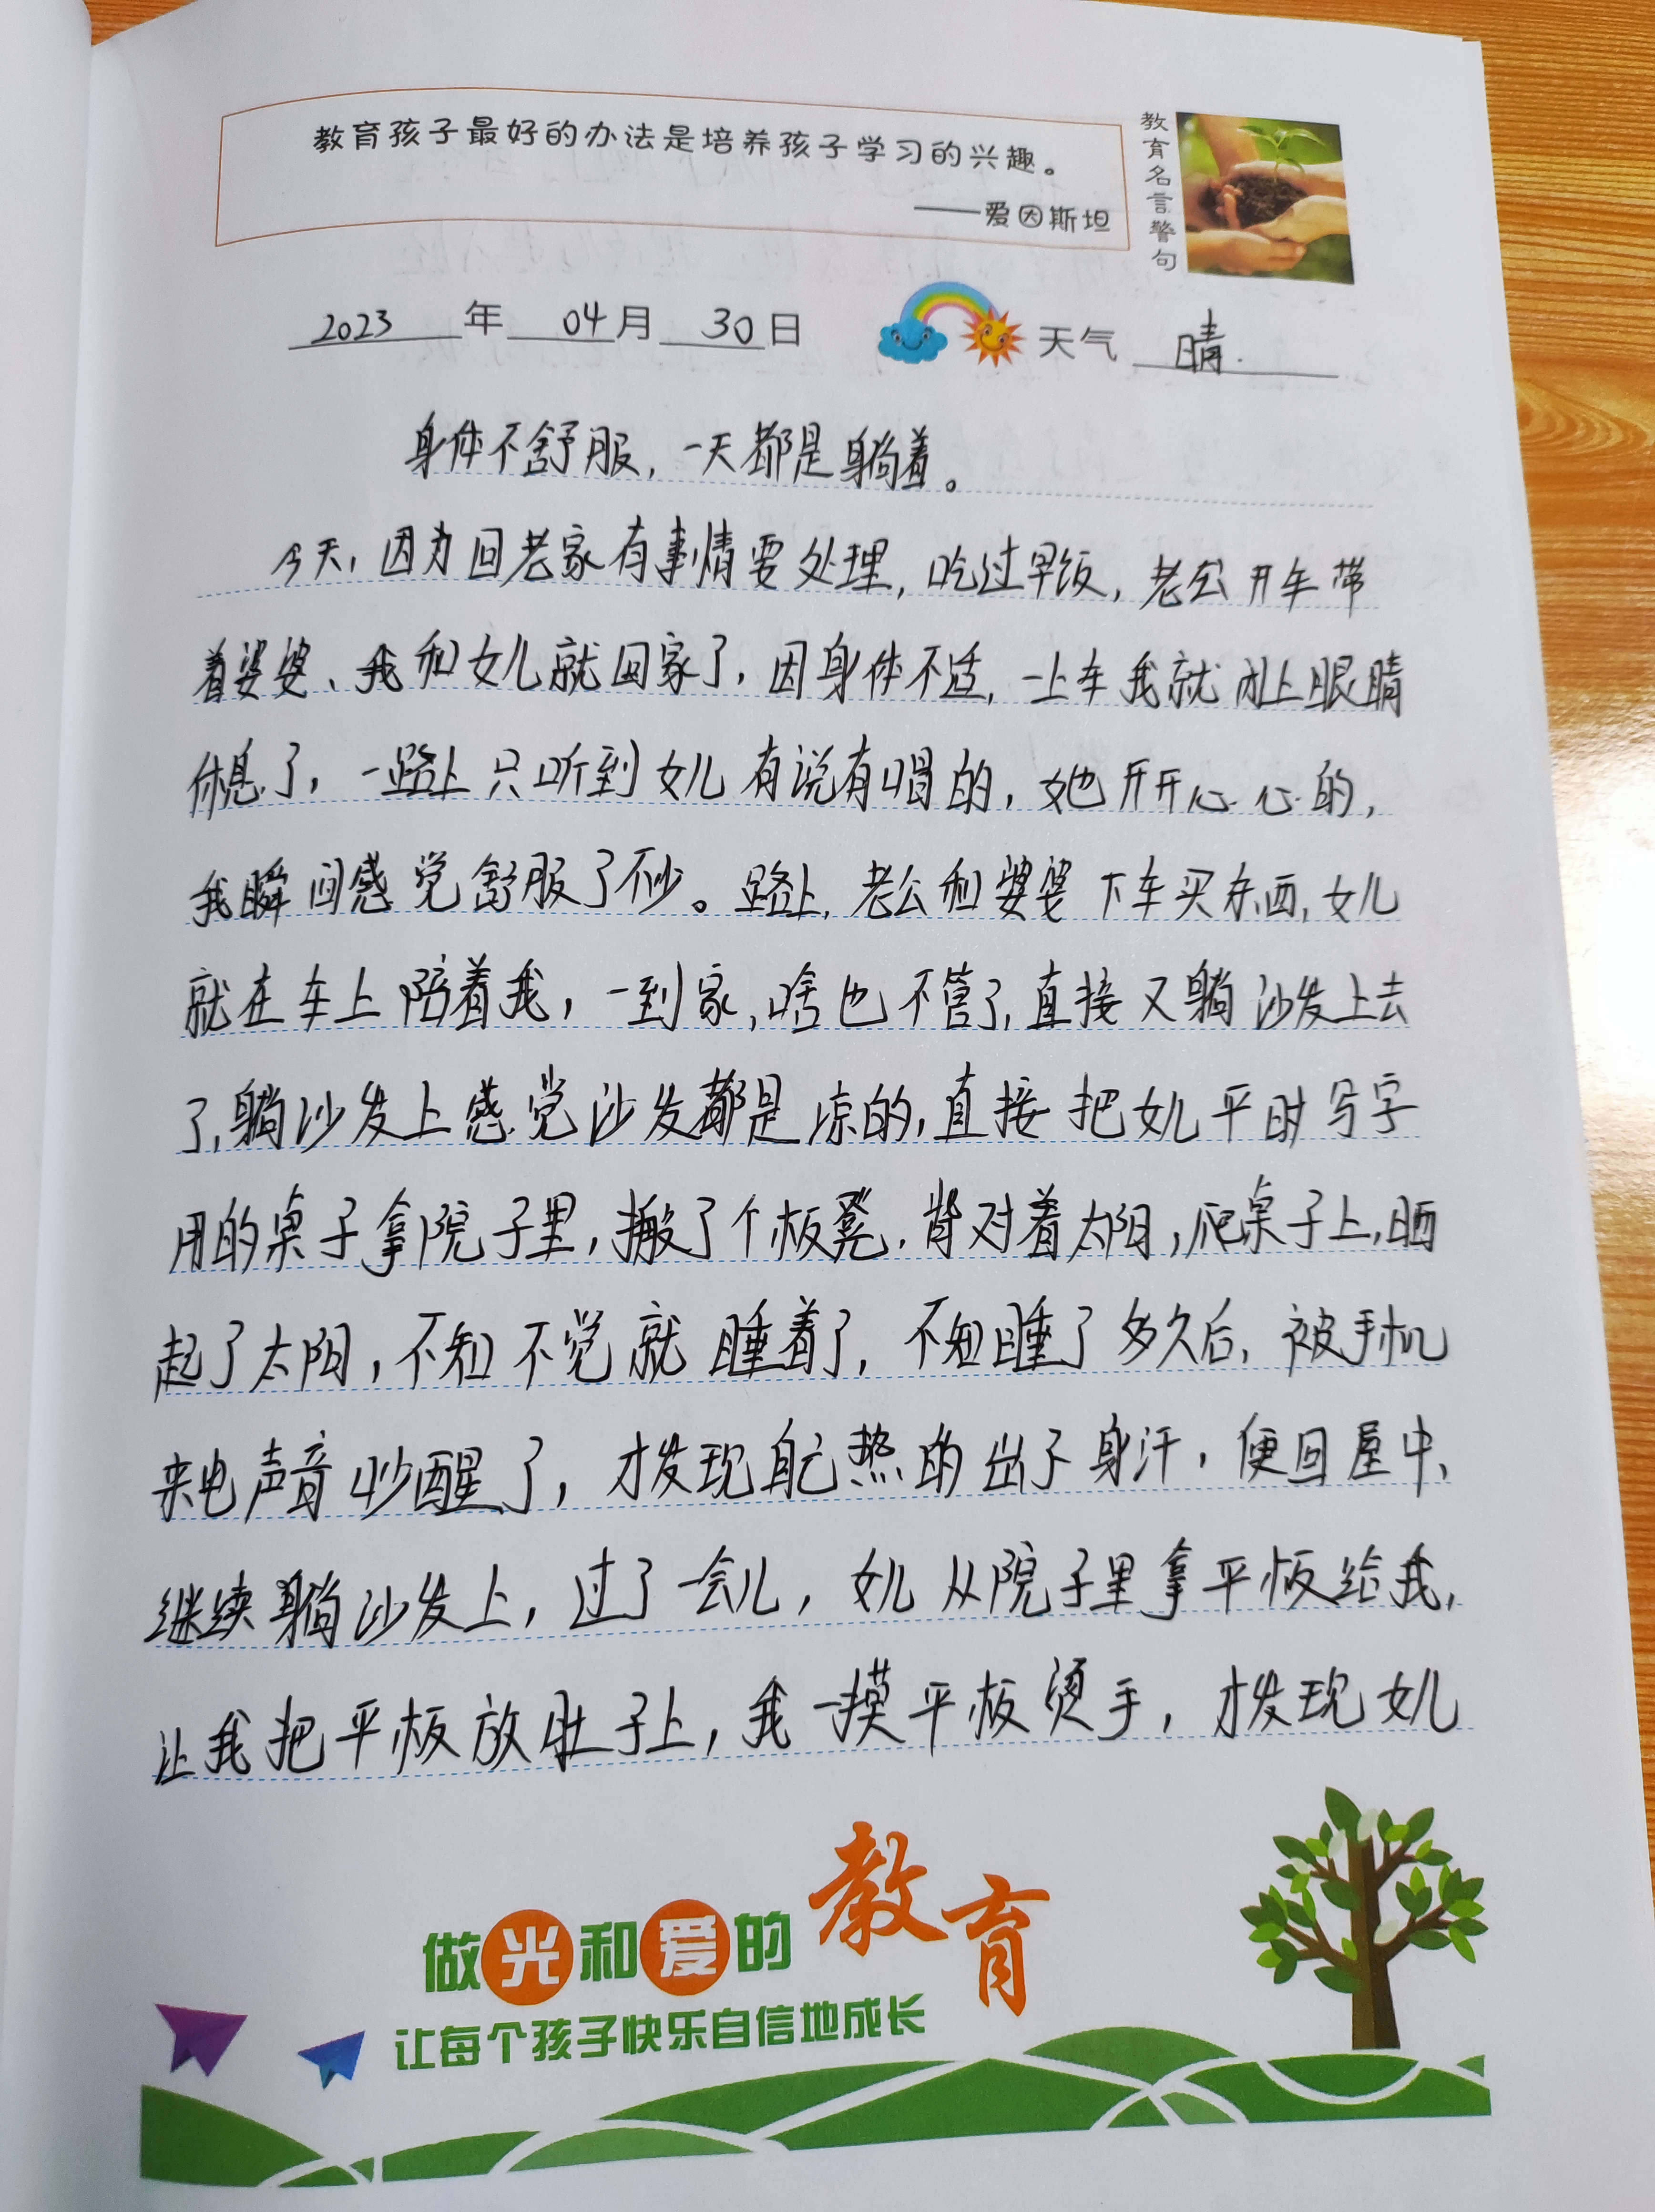 教育孩子最好的办法是培养孩子学习的兴趣。
——爱因斯坦
教育名言警句
2023年04月30日 天气 晴.
身体不舒服,一天都是躺着。
今天,因为回老家有事情要处理,吃过早饭,老公开车带
着婆婆、我和女儿就回家了,因身体不适,一上车我就闭上眼睛
休息了,一路上只听到女儿有说有唱的,她开开心心的,
我瞬间感觉舒服了不少。路上,老公和婆婆下车买东西,女儿
就在车上陪着我,一到家,啥也不管了,直接又躺沙发上去
了,躺沙发上感觉沙发都是凉的,直接把女儿平时写字
用的桌子拿院子里,搬了个板凳,背对着太阳,爬桌子上,晒
起了太阳,不知不觉就睡着了,不知睡了多久后,被手机
来电声音吵醒了,才发现自己热的出了身汗,便回屋中,
继续躺沙发上,过了一会儿,女儿从院子里拿平板给我,
让我把平板放肚子上,我一摸平板烫手,才发现女儿
做光和爱的教育
让每个孩子快乐自信地成长